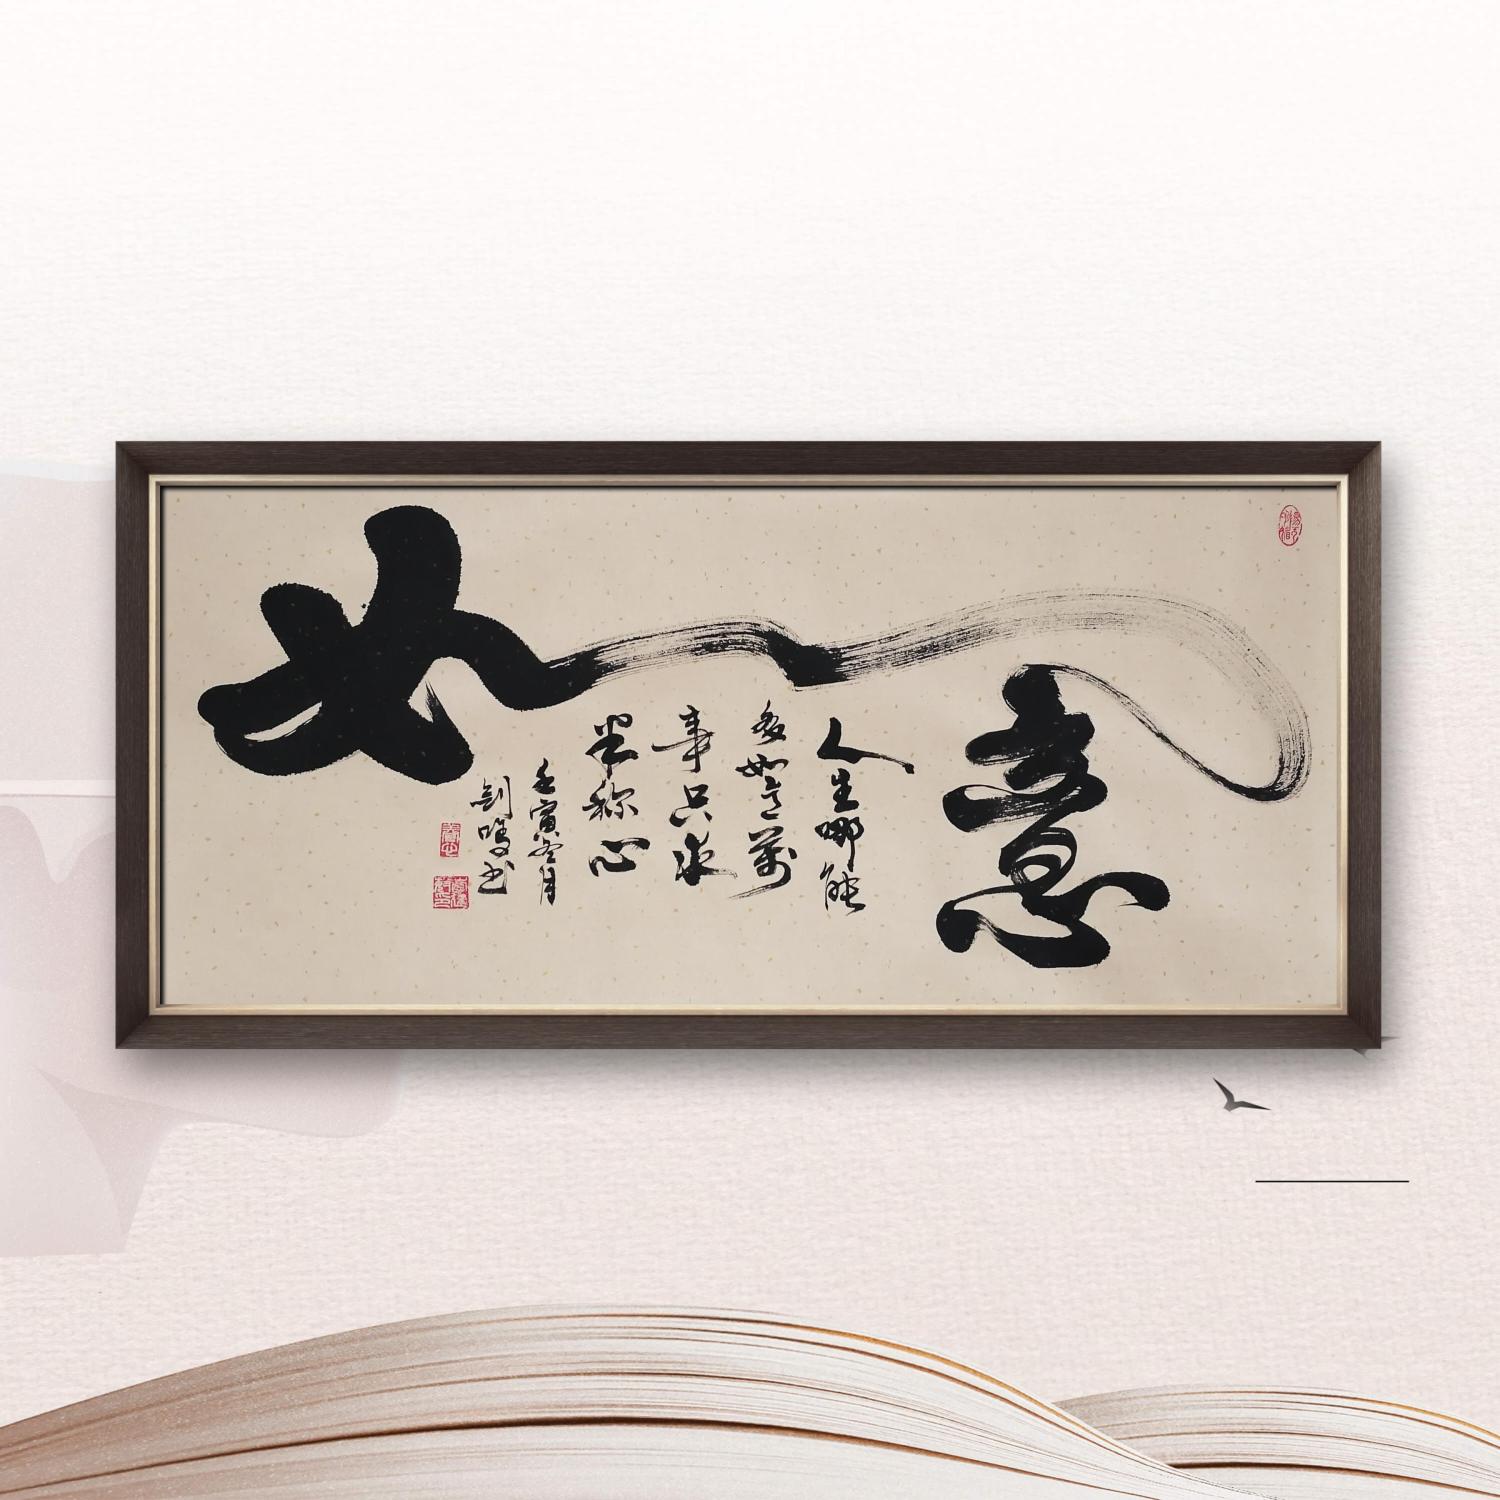 如意
人生哪能
多如意萬
事只求
半称心
壬寅冬月
剑鸣书